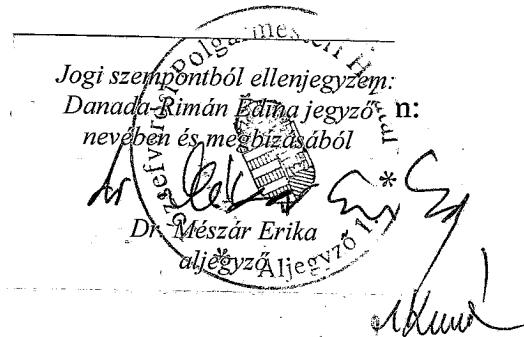 Jogi szempontból ellenjegyzem:
Danada-Rimán Edina jegyző n:
nevében és megbízásából
Dr. Mészár Erika
aljegyző
Józsefvárosi Polgármesteri Hivatal
* Aljegyző 1. *